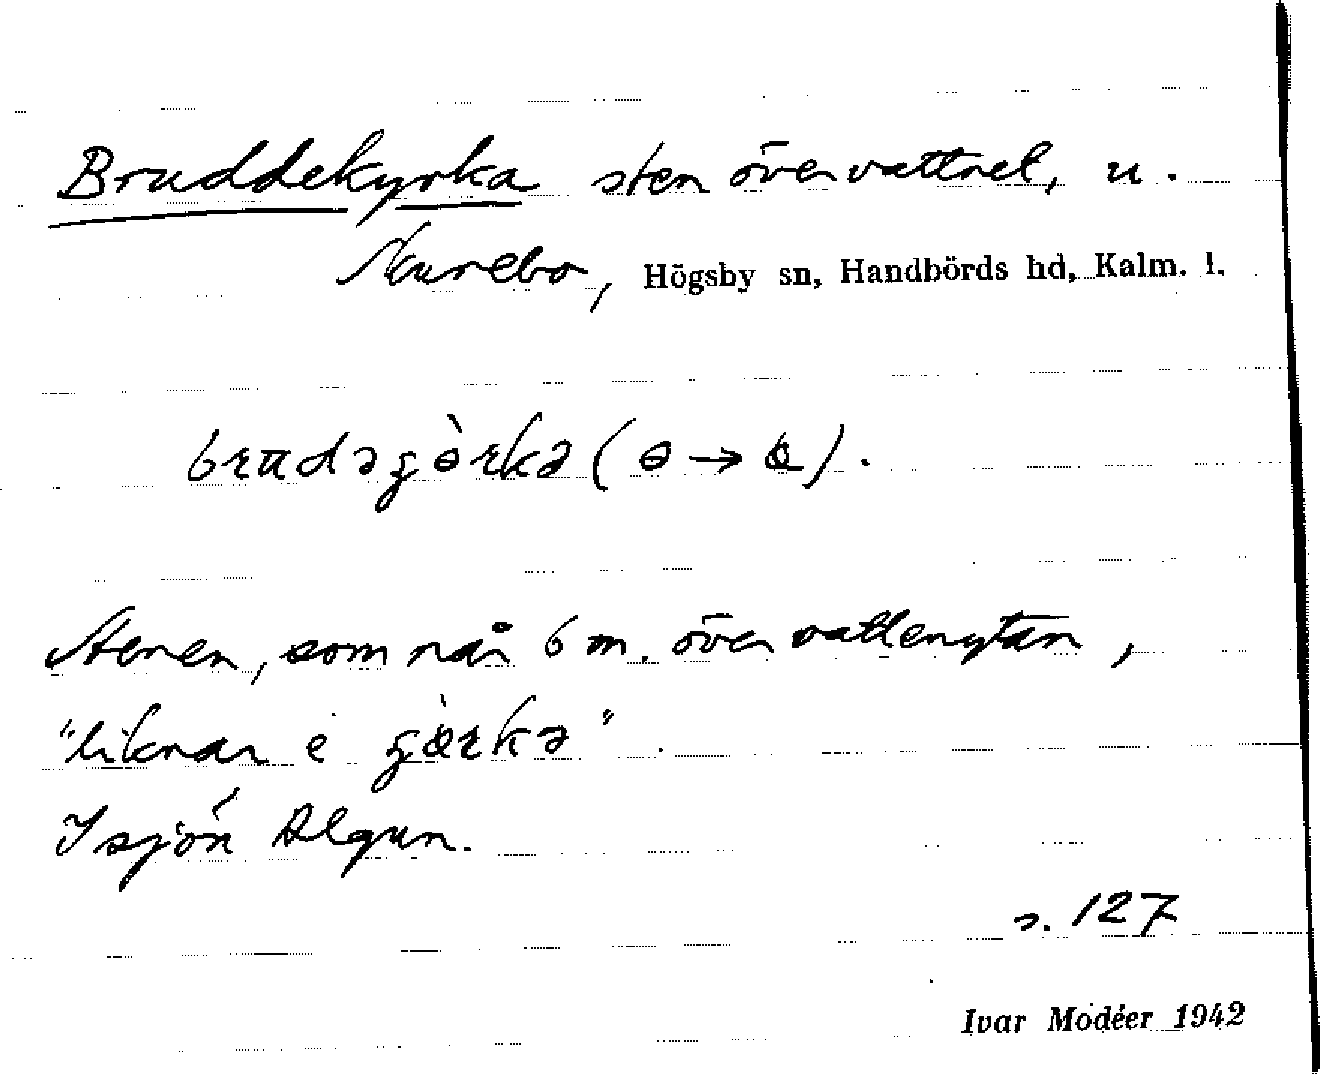 Bruddekyrka sten över vattnet, u.
Kurebo, Högsby sn, Handbörds hd, Kalm. l.
brudəgɵ̀rkə (ɵ → ꝍ).
Stenen, som når 6 m. över vattenytan,
"liknar e gørkə".
I sjön Algun.
s. 127
Ivar Modéer 1942